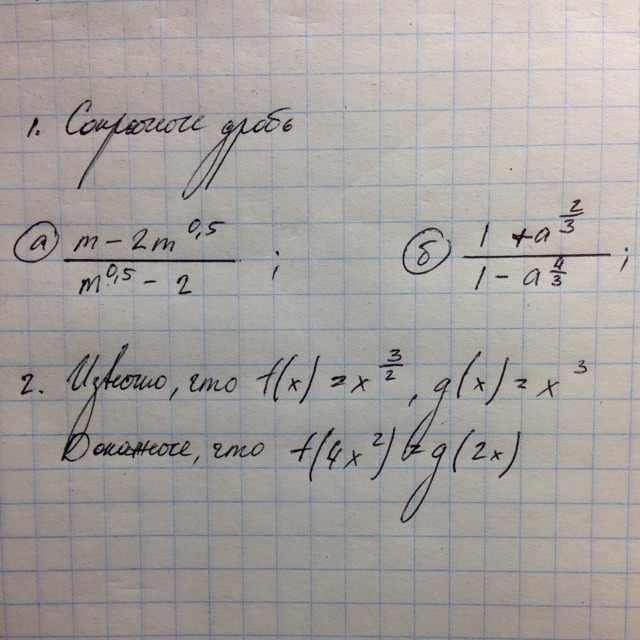 1. Сократите дробь
а) (m - 2m^0,5)/(m^0,5 - 2) ; б) (1 + a^(2/3))/(1 - a^(4/3)) ;
2. Известно, что f(x) = x^(3/2), g(x) = x^3
Докажите, что f(4x^2) = g(2x)